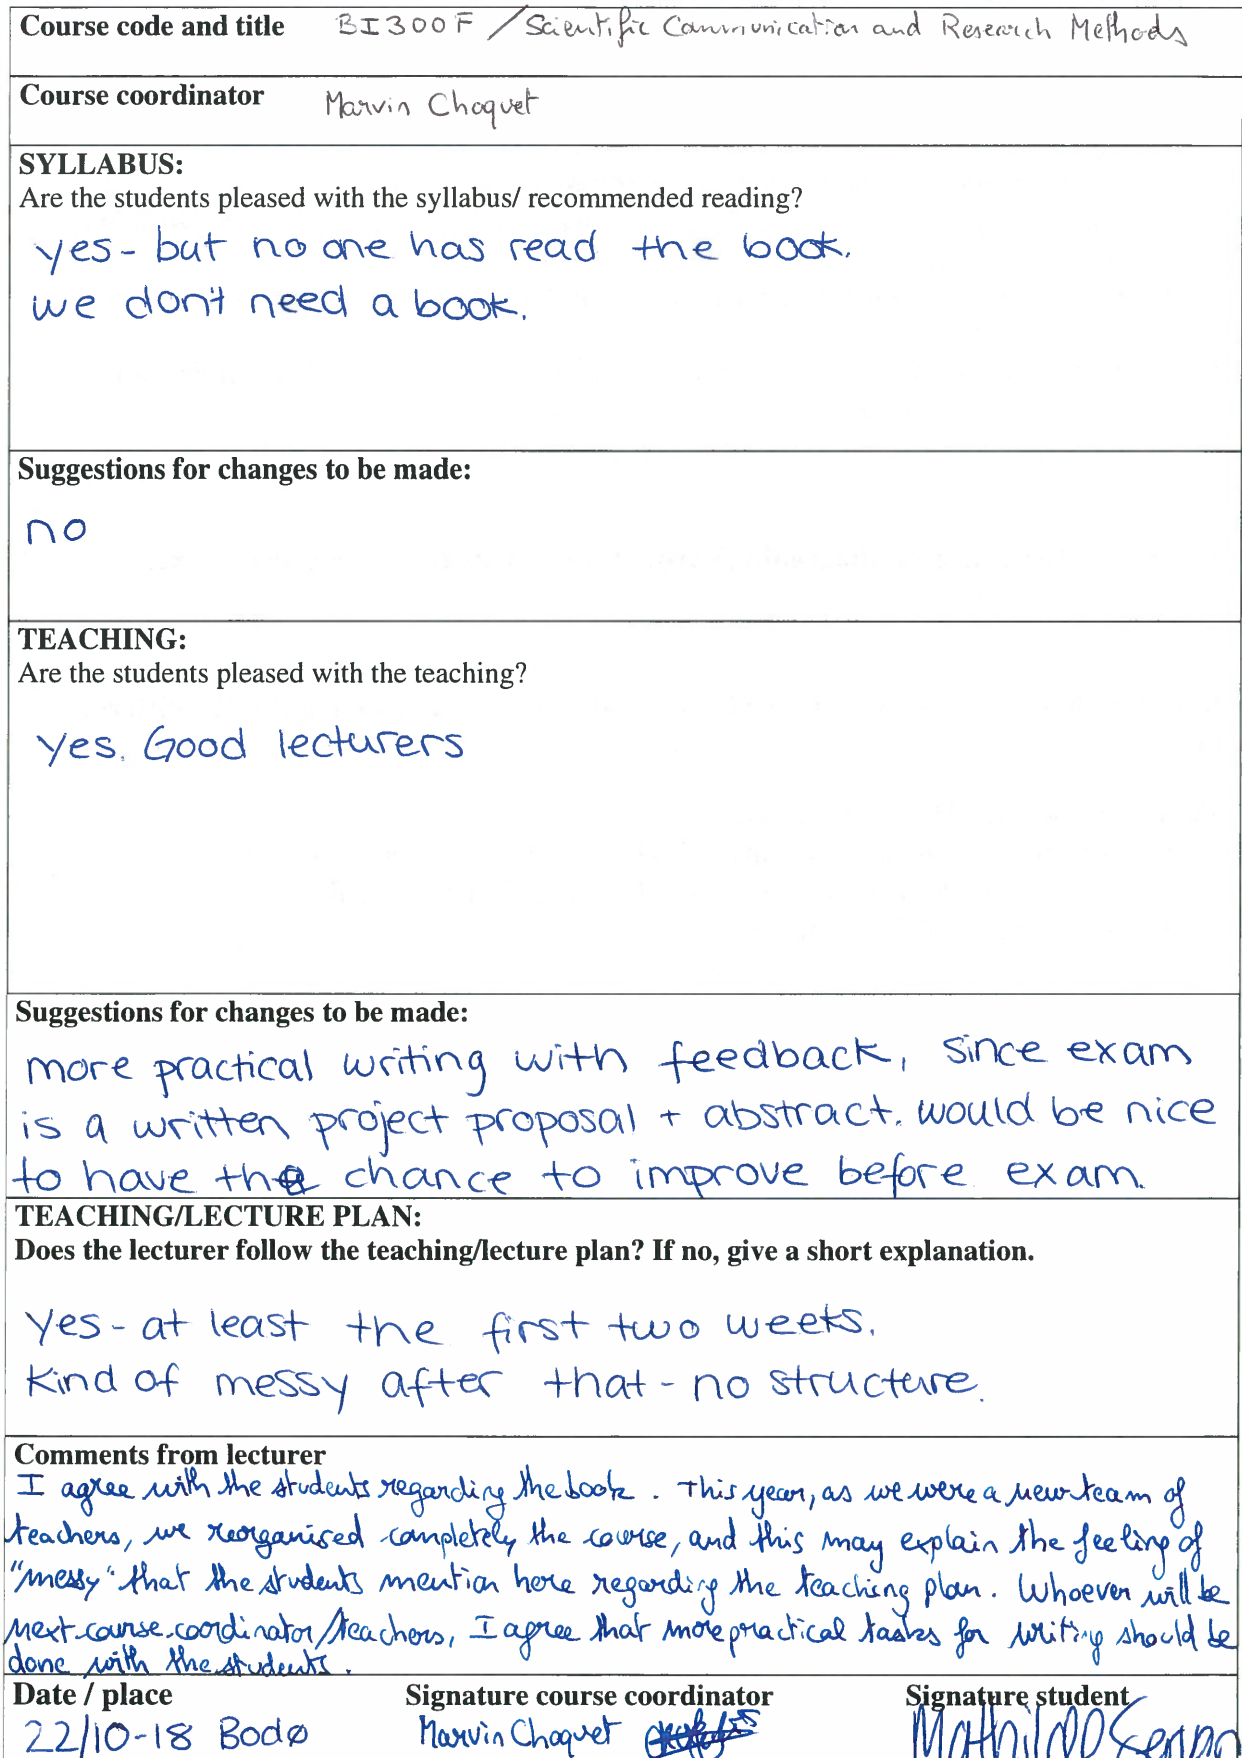 Course code and title BI300F / Scientific Communication and Research Methods
Course coordinator Marvin Choquet
SYLLABUS:
Are the students pleased with the syllabus/ recommended reading?
yes - but no one has read the book.
we don't need a book.
Suggestions for changes to be made:
no
TEACHING:
Are the students pleased with the teaching?
yes. Good lecturers
Suggestions for changes to be made:
more practical writing with feedback, since exam
is a written project proposal + abstract. would be nice
to have the chance to improve before exam.
TEACHING/LECTURE PLAN:
Does the lecturer follow the teaching/lecture plan? If no, give a short explanation.
Yes - at least the first two weeks.
Kind of messy after that - no structure.
Comments from lecturer
I agree with the students regarding the book. This year, as we were a new team of
teachers, we reorganised completely the course, and this may explain the feeling of
"messy" that the students mention here regarding the teaching plan. Whoever will be
next course coordinator/teachers, I agree that more practical tasks for writing should be
done with the students.
Date / place Signature course coordinator Signature student
22/10-18 Bodø Marvin Choquet